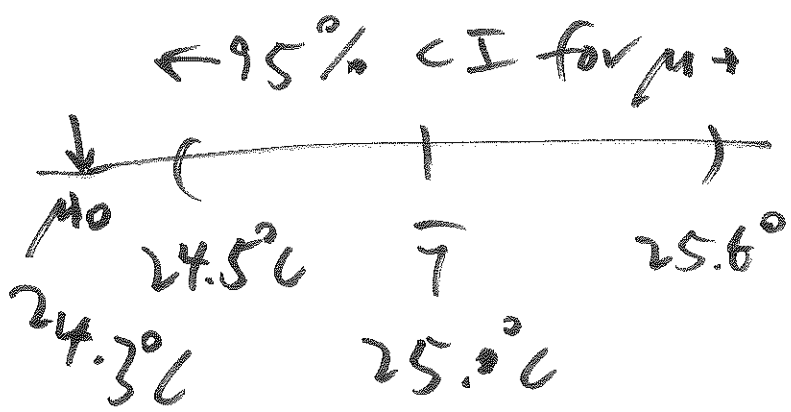 ←95% CI for μ→
( | )
μ0 24.5°C Ȳ 25.6°
24.3°C 25.0°C